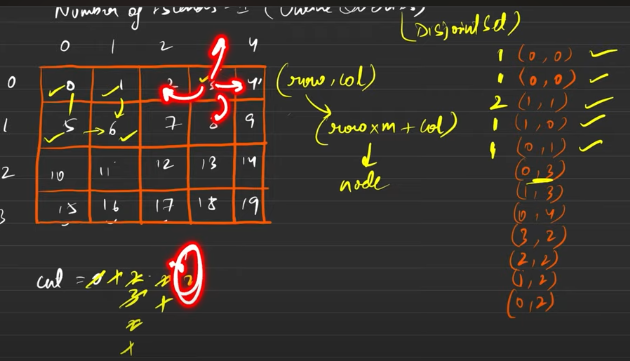 Number of Islands - II (Online Queries)
(Disjoint Set)
0 1 2 4
0 0 1 2 3 4
1 5 6 7 8 9
2 10 11 12 13 14
3 15 16 17 18 19
(row, col)
(row x m + col)
node
1 (0, 0)
1 (0, 0)
2 (1, 1)
1 (1, 0)
1 (0, 1)
(0, 3)
(1, 3)
(0, 4)
(3, 2)
(2, 2)
(1, 2)
(0, 2)
cnt = 0 1 2 2 2
3 1
2
1